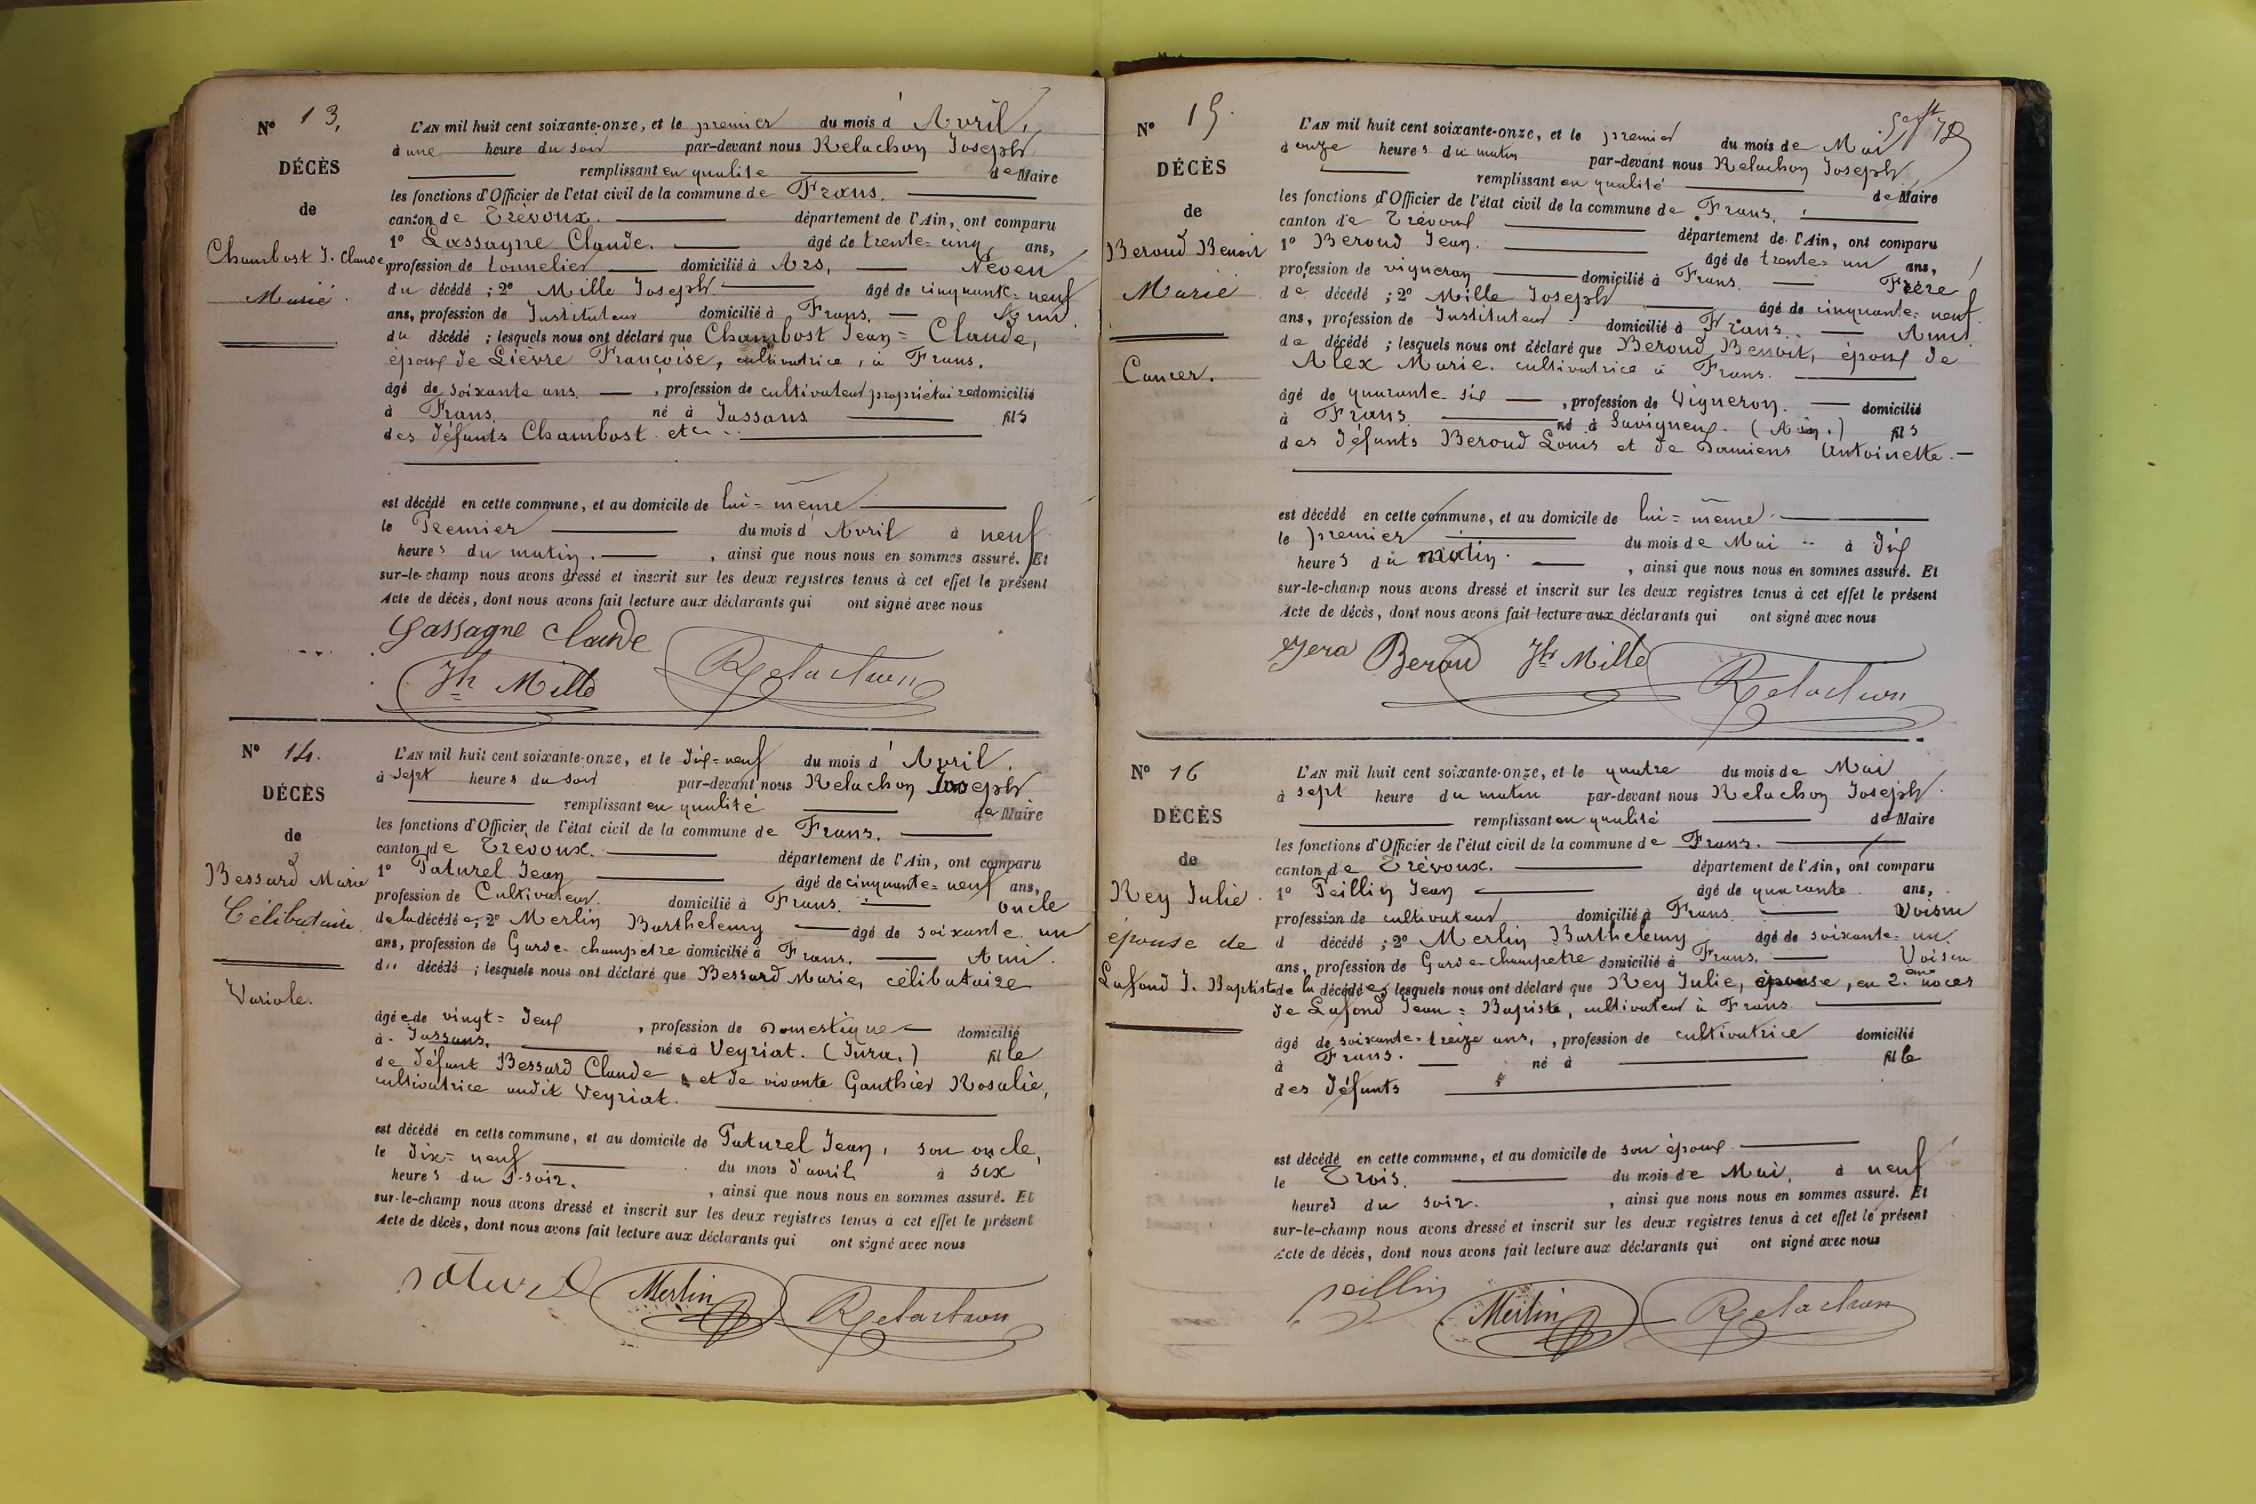 N° 13.
DÉCÈS
de
Chambost J. Claude
Marié.
L'AN mil huit cent soixante-onze, et le premier du mois d'Avril,
à une heure du soir par-devant nous Relachon Joseph
remplissant en qualité de Maire
les fonctions d'Officier de l'état civil de la commune de Frans.
canton de Trévoux. département de l'Ain, ont comparu
1° Lassagne Claude. âgé de trente-cinq ans,
profession de tonnelier domicilié à Ars, Neveu
du décédé ; 2° Mille Joseph. âgé de cinquante-neuf
ans, profession de Instituteur domicilié à Frans. Ami
du décédé ; lesquels nous ont déclaré que Chambost Jean-Claude,
époux de Lièvre Françoise, cultivatrice, à Frans.
âgé de soixante ans , profession de cultivateur propriétaire domicilié
à Frans. né à Jassans fils
des défunts Chambost etc...
est décédé en cette commune, et au domicile de lui-même
le Premier du mois d'Avril à neuf
heures du matin. , ainsi que nous nous en sommes assuré. Et
sur-le-champ nous avons dressé et inscrit sur les deux registres tenus à cet effet le présent
Acte de décès, dont nous avons fait lecture aux déclarants qui ont signé avec nous
Lassagne Claude
Jh Mille Relachon
N° 14.
DÉCÈS
de
Bessard Marie
Célibataire.
Variole.
L'AN mil huit cent soixante-onze, et le dix-neuf du mois d'Avril.
à sept heures du soir par-devant nous Relachon Joseph
remplissant en qualité de Maire
les fonctions d'Officier de l'état civil de la commune de Frans.
canton de Trévoux. département de l'Ain, ont comparu
1° Paturel Jean âgé de cinquante-neuf ans,
profession de Cultivateur. domicilié à Frans. oncle
de la décédée ; 2° Merlin Barthelemy âgé de soixante un
ans, profession de Garde-champetre domicilié à Frans. Ami.
du décédé ; lesquels nous ont déclaré que Bessard Marie, célibataire
âgée de vingt-deux , profession de Domestique domicilié
à Jassans. née à Veyriat. (Jura.) fille
de défunt Bessard Claude et de vivante Gauthier Rosalie,
cultivatrice audit Veyriat.
est décédé en cette commune, et au domicile de Paturel Jean, son oncle,
le dix-neuf du mois d'avril à six
heures du soir. , ainsi que nous nous en sommes assuré. Et
sur-le-champ nous avons dressé et inscrit sur les deux registres tenus à cet effet le présent
Acte de décès, dont nous avons fait lecture aux déclarants qui ont signé avec nous
paturel Merlin Relachon
N° 15.
DÉCÈS
de
Beroud Benoit
Marié
Cancer.
L'AN mil huit cent soixante-onze, et le premier du mois de Mai
à onze heures du matin par-devant nous Relachon Joseph
remplissant en qualité de Maire
les fonctions d'Officier de l'état civil de la commune de Frans.
canton de Trévoux département de l'Ain, ont comparu
1° Beroud Jean. âgé de trente-un ans,
profession de vigneron domicilié à Frans. Frère
de décédé ; 2° Mille Joseph âgé de cinquante-neuf
ans, profession de Instituteur domicilié à Frans. Ami
de décédé ; lesquels nous ont déclaré que Beroud Benoit, époux de
Alex Marie. cultivatrice à Frans.
âgé de quarante-six , profession de Vigneron. domicilié
à Frans. né à Savigneux. (Ain.) fils
des défunts Beroud Louis et de Damiens Antoinette.
est décédé en cette commune, et au domicile de lui-même
le premier du mois de Mai à dix
heures du matin. , ainsi que nous nous en sommes assuré. Et
sur-le-champ nous avons dressé et inscrit sur les deux registres tenus à cet effet le présent
Acte de décès, dont nous avons fait lecture aux déclarants qui ont signé avec nous
Berou Jh Mille Relachon
N° 16
DÉCÈS
de
Rey Julie.
épouse de
Lafond J. Baptiste
L'AN mil huit cent soixante-onze, et le quatre du mois de Mai
à sept heure du matin par-devant nous Relachon Joseph.
remplissant en qualité de Maire
les fonctions d'Officier de l'état civil de la commune de Frans.
canton de Trévoux. département de l'Ain, ont comparu
1° Peillin Jean âgé de quarante ans,
profession de cultivateur domicilié à Frans. Voisin
d décédé ; 2° Merlin Barthelemy âgé de soixante-un
ans, profession de Garde-champetre domicilié à Frans. Voisin
de la décédée, lesquels nous ont déclaré que Rey Julie, épouse, en 2eme noces
de Lafond Jean-Baptiste, cultivateur à Frans
âgé de soixante-treize ans, , profession de cultivatrice domicilié
à Frans. né à fille
des défunts
est décédé en cette commune, et au domicile de son époux
le Trois. du mois de Mai, à neuf
heures du soir. , ainsi que nous nous en sommes assuré. Et
sur-le-champ nous avons dressé et inscrit sur les deux registres tenus à cet effet le présent
Acte de décès, dont nous avons fait lecture aux déclarants qui ont signé avec nous
peillin Merlin Relachon